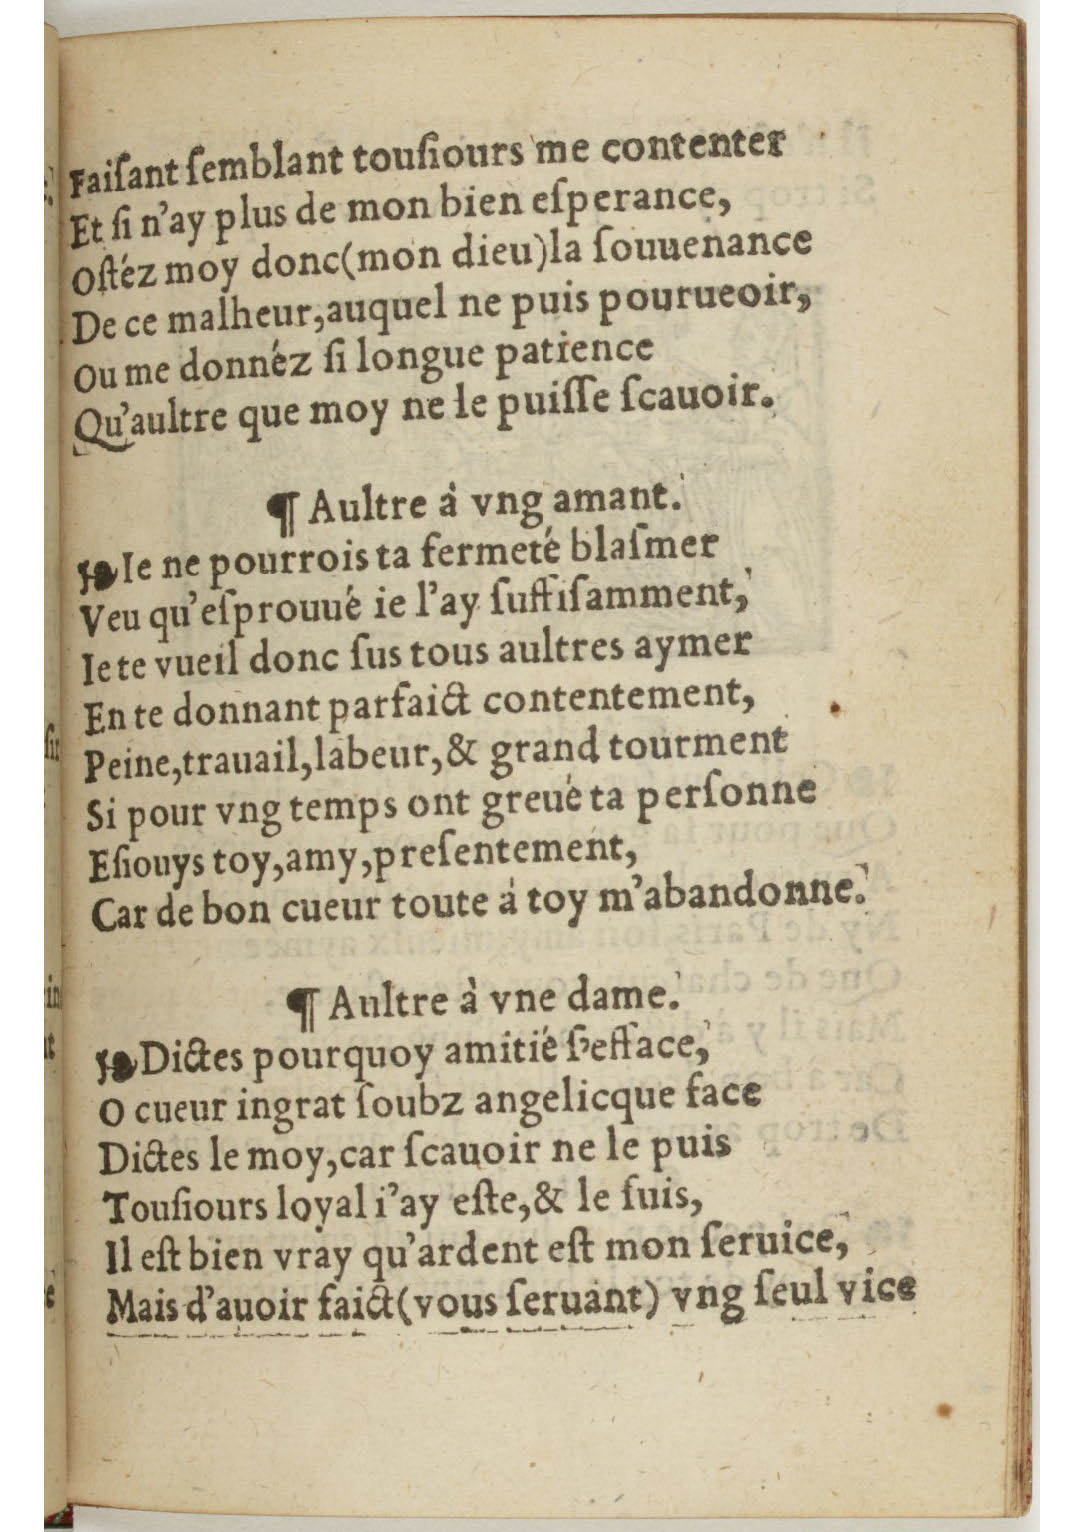 Faiſant ſemblant touſiours me contenter
Et ſi n'ay plus de mon bien eſperance,
Oſtéz moy donc(mon dieu)la ſouuenance
De ce malheur,auquel ne puis pourueoir,
Ou me donnéz ſi longue patience
Qu'aultre que moy ne le puiſſe ſcauoir.
¶ Aultre à vng amant.
Ie ne pourrois ta fermeté blaſmer
Veu qu'eſprouué ie l'ay ſuffiſamment,
Ie te vueil donc ſus tous aultres aymer
En te donnant parfaict contentement,
Peine,trauail,labeur,& grand tourment
Si pour vng temps ont greué ta perſonne
Eſiouys toy,amy,preſentement,
Car de bon cueur toute à toy m'abandonne.
¶ Aultre à vne dame.
Dictes pourquoy amitié ſ'efface,
O cueur ingrat ſoubz angelicque face
Dictes le moy,car ſcauoir ne le puis
Touſiours loyal i'ay eſte,& le ſuis,
Il eſt bien vray qu'ardent eſt mon ſeruice,
Mais d'auoir faict(vous ſeruant) vng ſeul vice